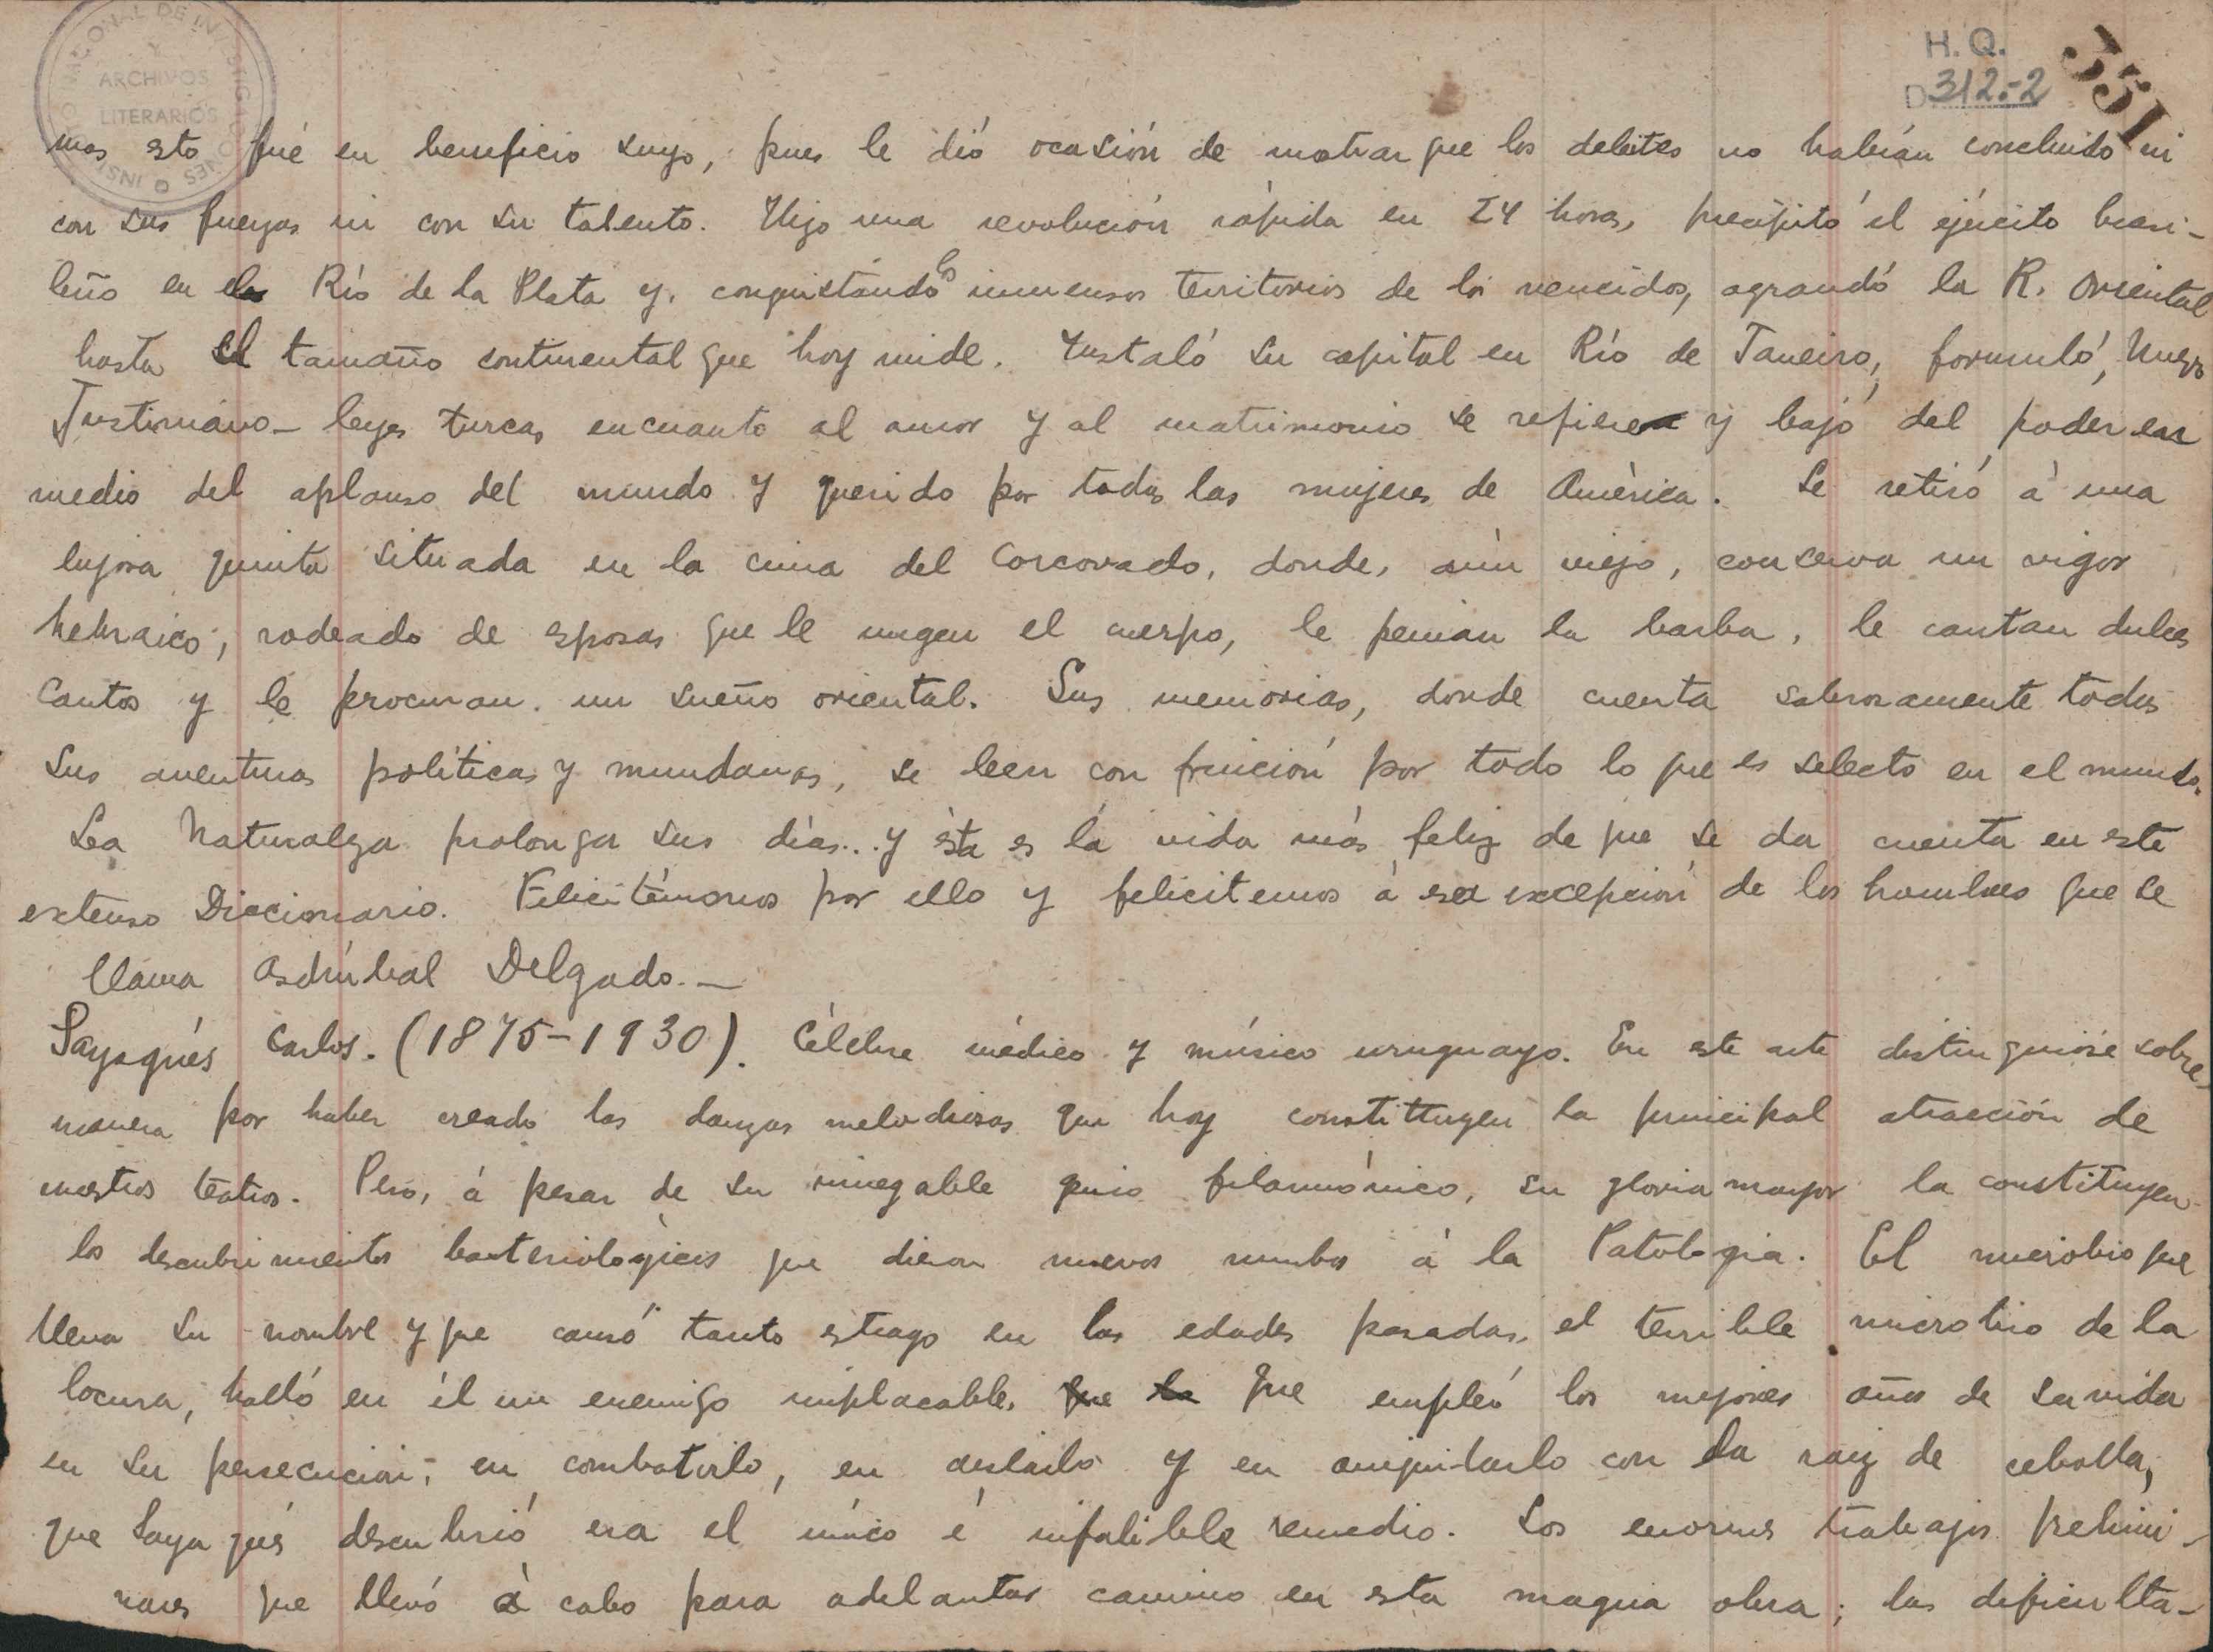 INSTITUTO NACIONAL DE INVESTIGACIONES
Y
ARCHIVOS
LITERARIOS
H. Q.
D 312-2
351
mas esto fué en beneficio suyo, pues le dió ocasión de mostrar que los deleites no habían concluido ni
con sus fuerzas ni con su talento. Hizo una revolución rápida en 24 horas, precipitó el ejército brasi-
leño en el Río de la Plata y, conquistando los inmensos territorios de los vencidos, agrandó la R. Oriental
hasta el tamaño continental que hoy mide. Instaló su capital en Río de Janeiro, formuló, nuevo
Justiniano- leyes turcas en cuanto al amor y al matrimonio se refiere y bajó del poder en
medio del aplauso del mundo y querido por todas las mujeres de América. Se retiró á una
lujosa quinta situada en la cima del Corcovado, donde, aún viejo, conserva un vigor
hebraico, rodeado de esposas que le ungen el cuerpo, le peinan la barba, le cantan dulces
cantos y le procuran un sueño oriental. Sus memorias, donde cuenta sabrosamente todas
sus aventuras políticas y mundanas, se leen con fruición por todo lo que es selecto en el mundo.
La Naturaleza prolonga sus días... y ésta es la vida más feliz de que se da cuenta en este
extenso Diccionario. Felicitémonos por ello y felicitemos á esa excepción de los hombres que se
llama Asdrúbal Delgado.—
Sayagués Carlos. (1875-1930). Célebre médico y músico uruguayo. En este arte distinguióse sobre
manera por haber creado las danzas melodiosas que hoy constituyen la principal atracción de
nuestros teatros. Pero, á pesar de su innegable genio filarmónico, su gloria mayor la constituyen
los descubrimientos bacteriológicos que dieron nuevos rumbos á la Patología. El microbio que
lleva su nombre y que causó tanto estrago en las edades pasadas, el terrible microbio de la
locura, halló en él un enemigo implacable, que la que empleó los mejores años de su vida
en su persecución; en combatirlo, en aislarlo y en aniquilarlo con la raiz de cebolla,
que Sayagués descubrió era el único é infalible remedio. Los enormes trabajos prelimi-
nares que llevó á cabo para adelantar camino en esta magna obra; las dificulta-